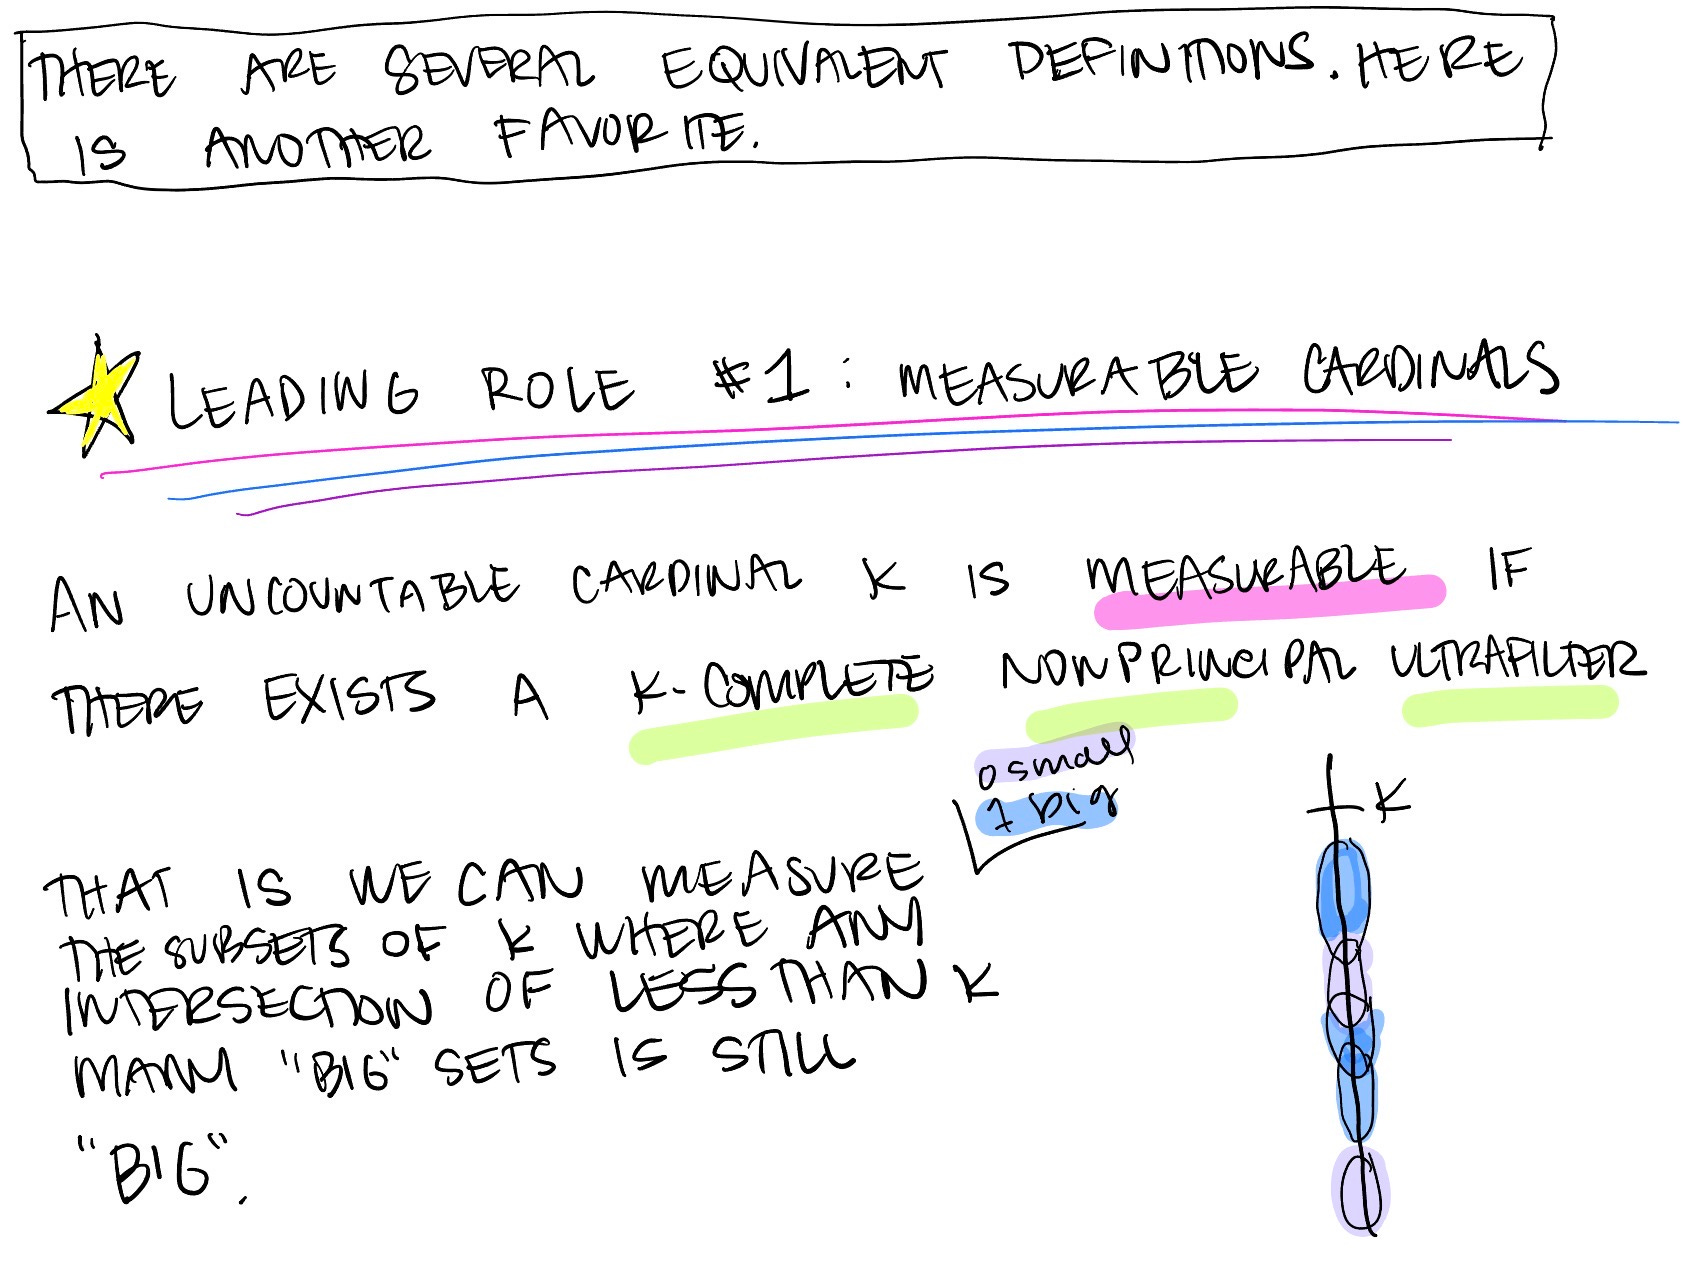 THERE ARE SEVERAL EQUIVALENT DEFINITIONS. HERE
IS ANOTHER FAVORITE.
LEADING ROLE #1: MEASURABLE CARDINALS
AN UNCOUNTABLE CARDINAL K IS MEASURABLE IF
THERE EXISTS A K-COMPLETE NONPRINCIPAL ULTRAFILTER
0 small
1 big
K
THAT IS WE CAN MEASURE
THE SUBSETS OF K WHERE ANY
INTERSECTION OF LESS THAN K
MANY "BIG" SETS IS STILL
"BIG".